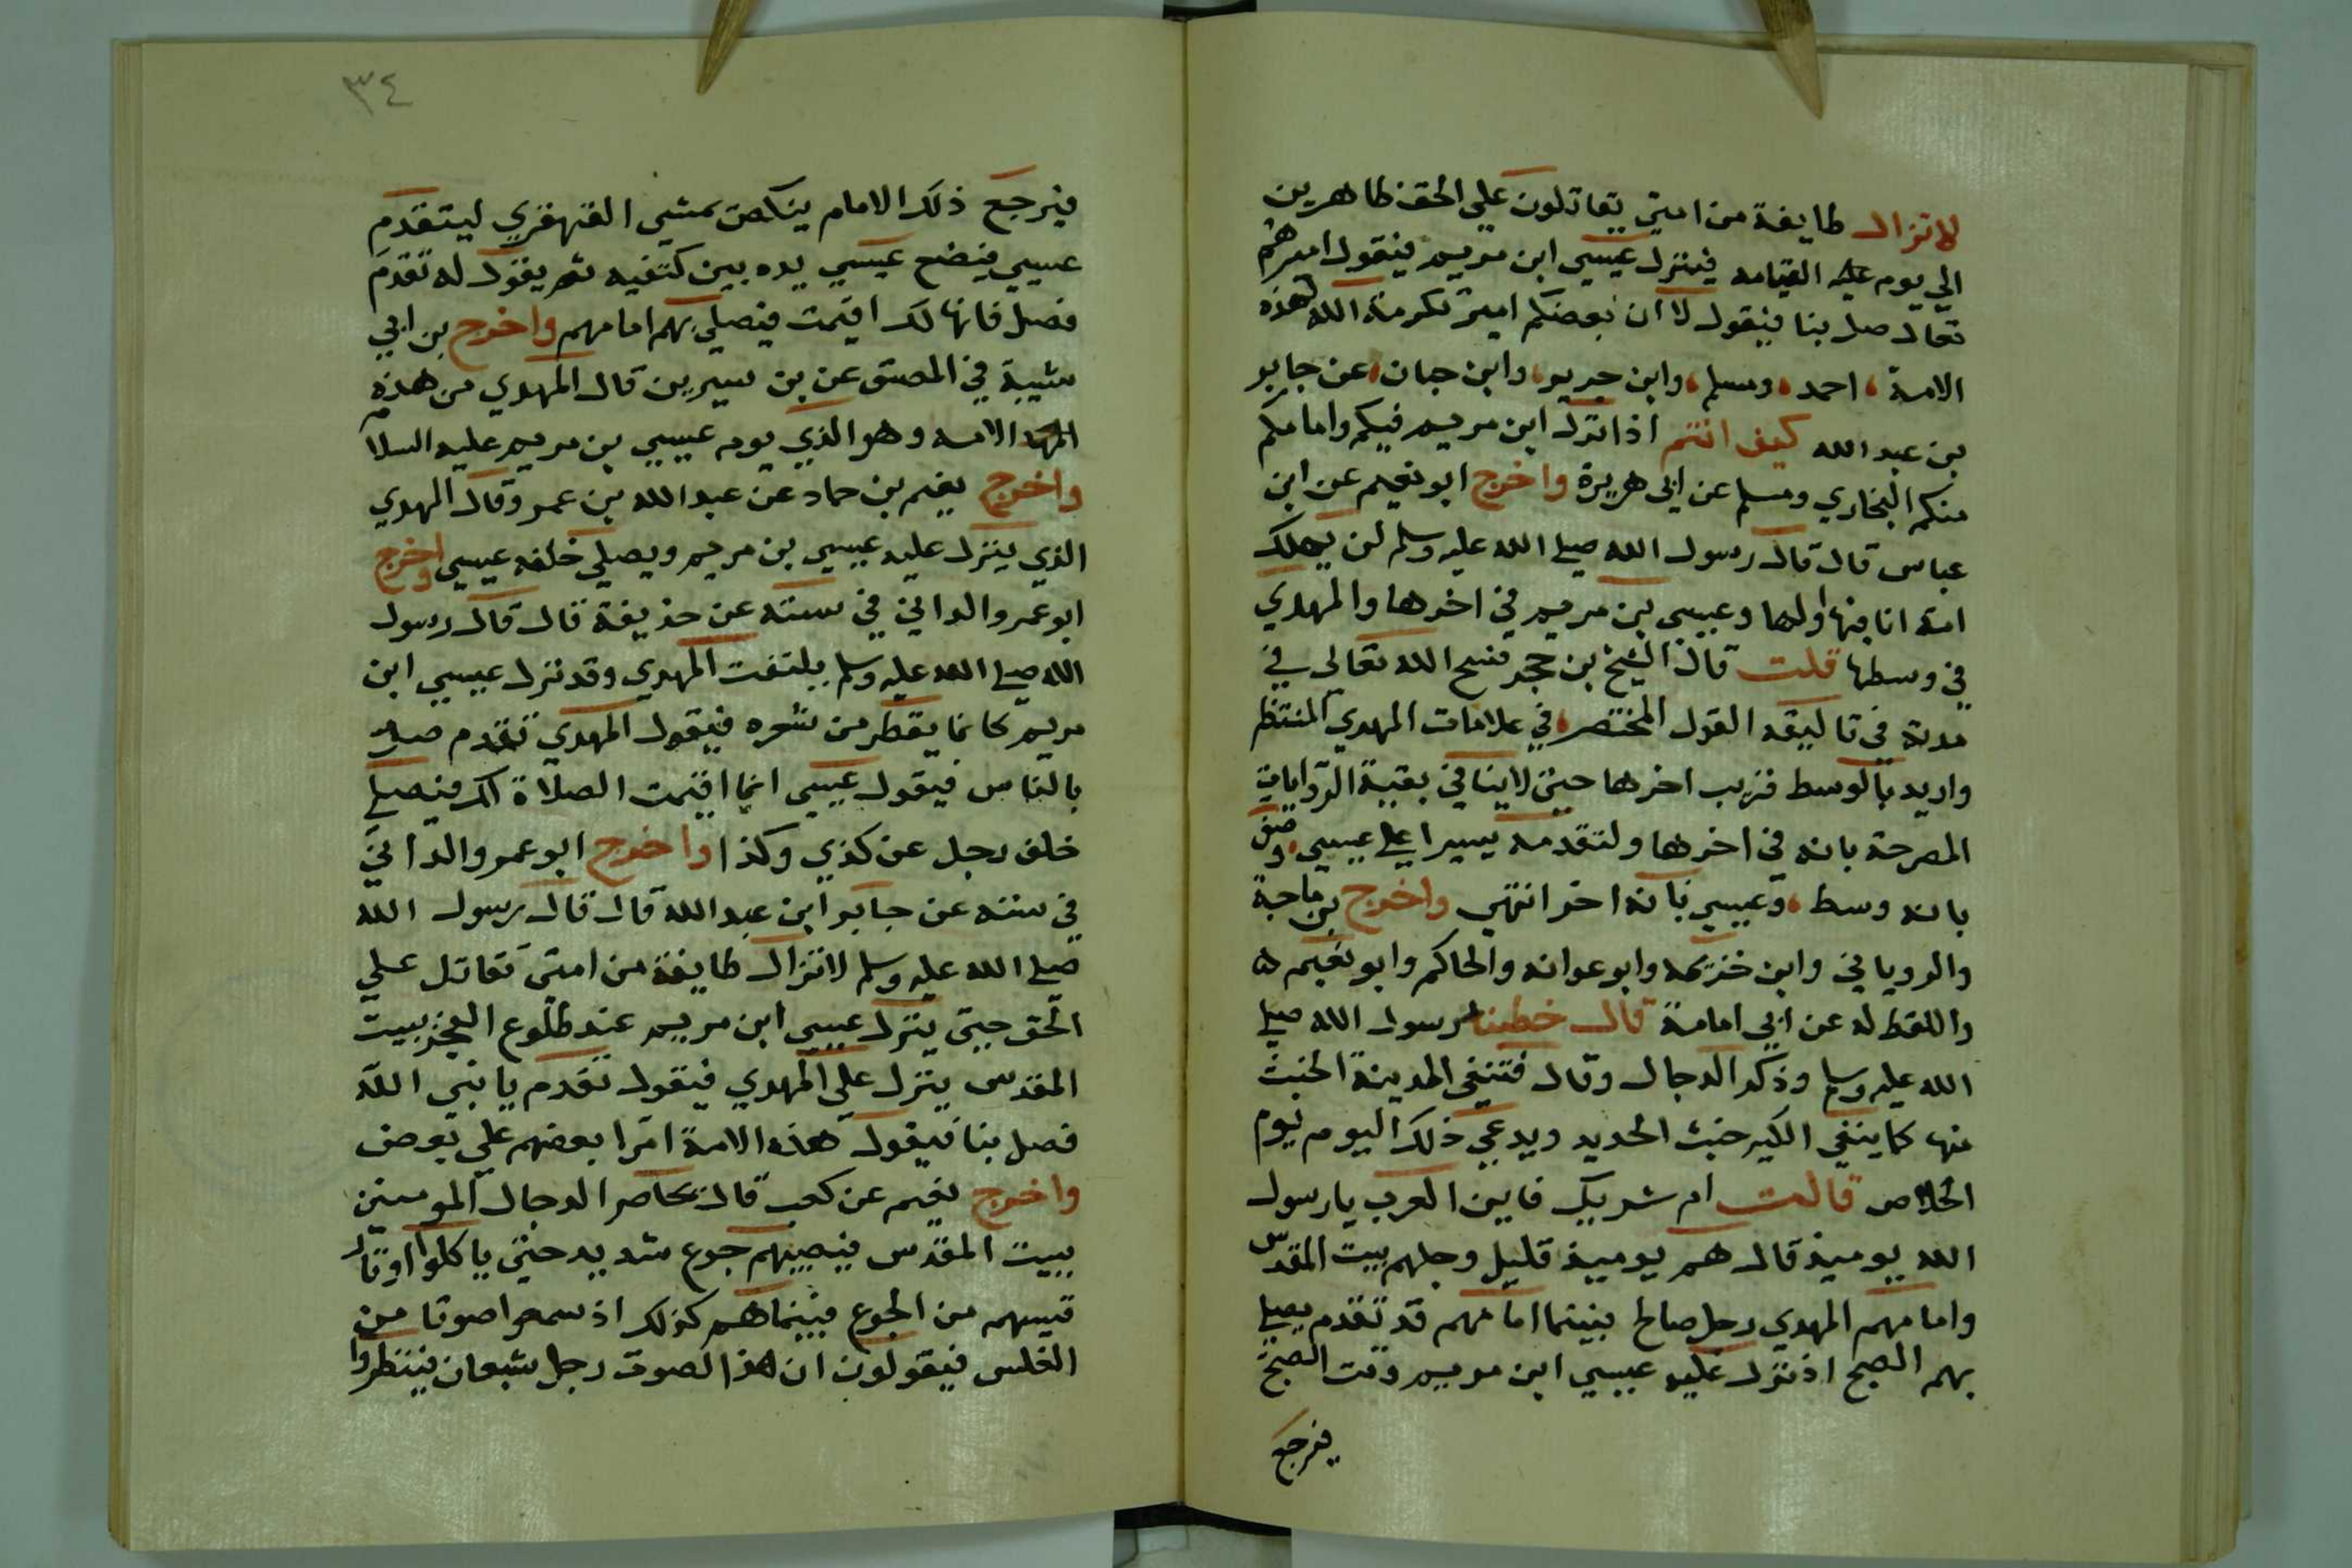 لاتزال طايفة من امتي يقاتلون علي الحق ظاهرين
الي يوم القيامه فينزل عيسي ابن مريم فيقول اميرهم
تعال صل بنا فيقول لا ان بعضكم امير تكرمة الله لهذه
الامة احمد ومسلم وابن جرير وابن حبان عن جابر
بن عبد الله كيف انتم اذا نزل ابن مريم فيكم وامامكم
منكم البخاري ومسلم عن ابي هريرة واخرج ابو نعيم عن ابن
عباس قال قال رسول الله صلي الله عليه وسلم لن يهلك
امة انا فيها اولها وعيسي بن مريم في اخرها والمهدي
في وسطها قلت قال الشيخ بن حجر فسح الله تعالى في
مدته في تاليقه القول المختصر في علامات المهدي المنتظر
واريد بالوسط قريب اخرها حتي لاينافي بقية الروايات
المصرحة بانه في اخرها ولتقدمه يسيرا علي عيسي وصف
بانه وسط وعيسي بانه اخر انتهي واخرج بن ماجة
والروياني وابن خزيمه وابو عوانه والحاكم وابو نعيم
واللفظ له عن ابي امامة قال خطبنا رسول الله صلي
الله عليه وسلم وذكر الدجال وقال فتنفي المدينة الخبث
منها كما ينفي الكير خبث الحديد ويدعي ذلك اليوم يوم
الخلاص قالت ام شريك فاين العرب يا رسول
الله يوميذ قال هم يوميذ قليل وجلهم ببيت المقدس
وامامهم المهدي رجل صالح فبينما امامهم قد تقدم يصلي
بهم الصبح اذ نزل عليه عيسي ابن مريم وقت الصبح
فيرجع
٣٤
فيرجع ذلك الامام ينكص يمشي القهقري ليتقدم
عيسي فيضع عيسي يده بين كتفيه ثم يقول له تقدم
فصل فانها لك اقيمت فيصلي بهم امامهم واخرج بن ابي
شيبة في المصنف عن بن سيرين قال المهدي من هذه
الامه وهو الذي يوم عيسي بن مريم عليه السلام
واخرج نعيم بن حماد عن عبد الله بن عمر وقال المهدي
الذي ينزل عليه عيسي بن مريم ويصلي خلفه عيسي واخرج
ابو عمرو الداني في سننه عن حذيفة قال قال رسول
الله صلي الله عليه وسلم يلتفت المهدي وقد نزل عيسي ابن
مريم كانما يقطر من شعره فيقول المهدي تقدم صل
بالناس فيقول عيسي انما اقيمت الصلاة لك فيصلي
خلف رجل عن كذي وكذا واخرج ابو عمرو الداني
في سننه عن جابر ابن عبد الله قال قال رسول الله
صلي الله عليه وسلم لاتزال طايفة من امتي تقاتل علي
الحق حتي ينزل عيسي ابن مريم عند طلوع الفجر ببيت
المقدس ينزل علي المهدي فيقول تقدم يا نبي الله
فصل بنا فيقول هذه الامة امرا بعضهم علي بعض
واخرج نعيم عن كعب قال يحاصر الدجال المومنين
ببيت المقدس فيصيبهم جوع شديد حتي ياكلوا اوتار
قيسهم من الجوع فبينما هم كذلك اذ سمعوا صوتا من
الغلس فيقولون ان هذا لصوت رجل شبعان فينظروا